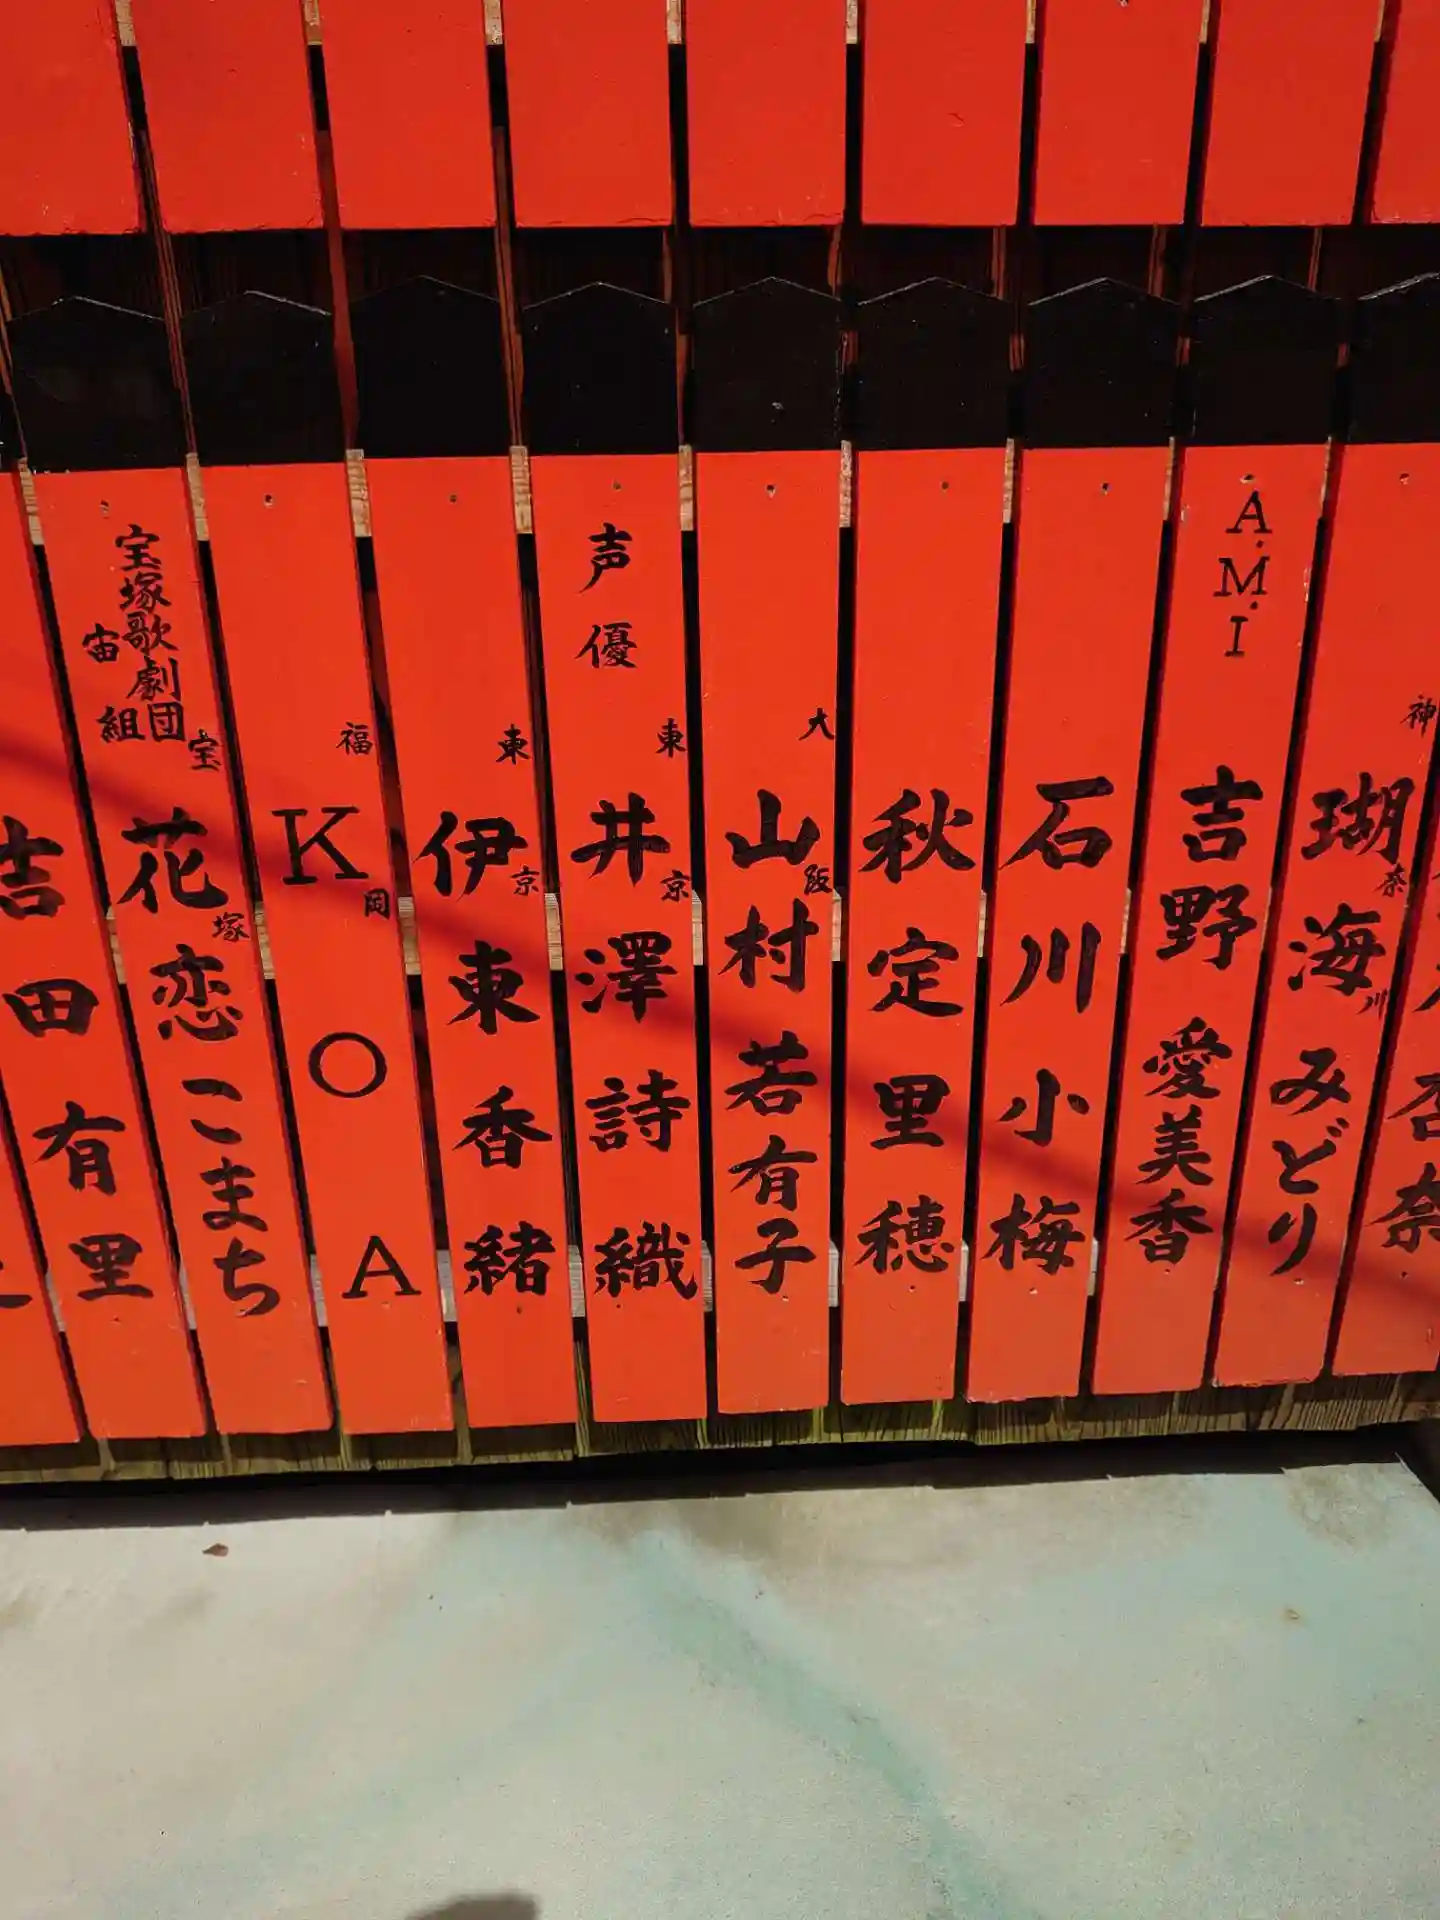 神奈川
瑚海みどり
A.M.I
吉野愛美香
石川小梅
秋定里穂
大阪
山村若有子
声優
東京
井澤詩織
東京
伊東香緒
福岡
KOA
宝塚歌劇団
宙組
宝塚
花恋こまち
吉田有里